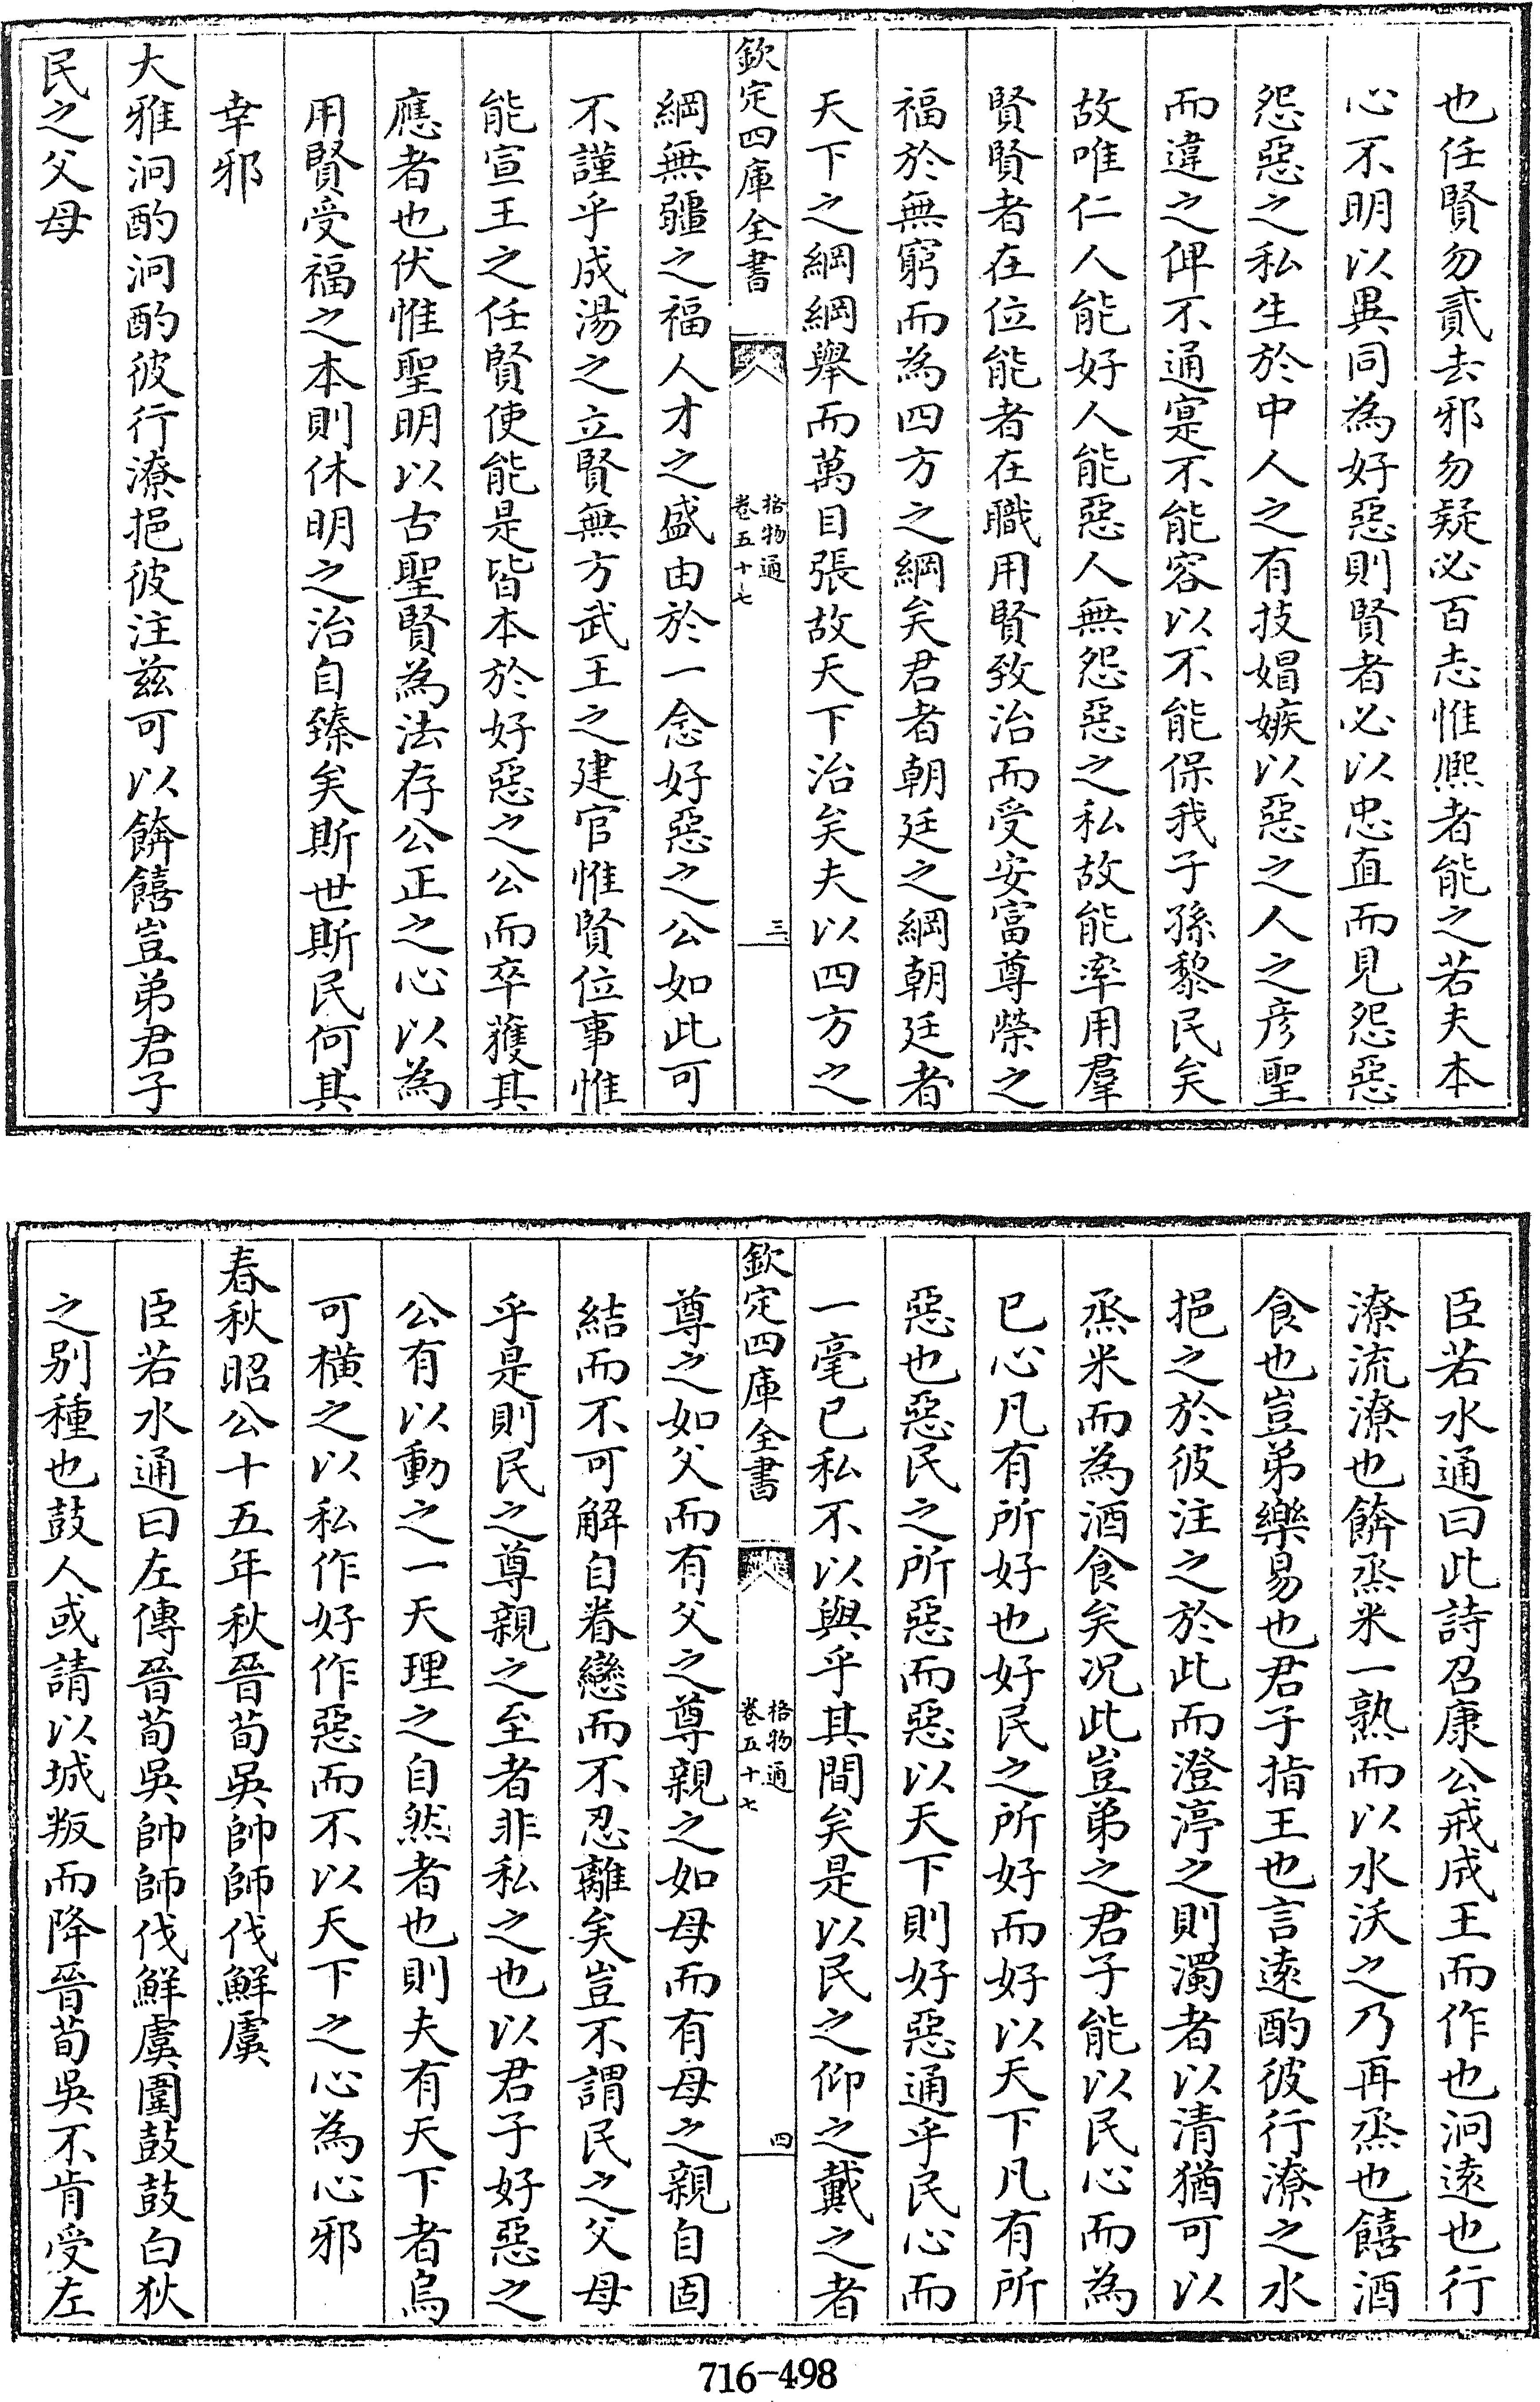 也任賢勿貳去邪勿疑必百志惟熈者能之若夫本
心不明以異同為好惡則賢者必以忠直而見怨惡
怨惡之私生於中人之有技媢嫉以惡之人之彦聖
而違之俾不通寔不能容以不能保我子孫黎民矣
故唯仁人能好人能惡人無怨惡之私故能率用羣
賢賢者在位能者在職用賢致治而受安富尊榮之
福於無窮而為四方之綱矣君者朝廷之綱朝廷者
天下之綱綱舉而萬目張故天下治矣夫以四方之
欽定四庫全書
格物通
卷五十七
三
綱無疆之福人才之盛由於一念好惡之公如此可
不謹乎成湯之立賢無方武王之建官惟賢位事惟
能宣王之任賢使能是皆本於好惡之公而卒獲其
應者也伏惟聖明以古聖賢為法存公正之心以為
用賢受福之本則休明之治自臻矣斯世斯民何其
幸邪
大雅泂酌泂酌彼行潦挹彼注兹可以餴饎豈弟君子
民之父母
臣若水通曰此詩召康公戒成王而作也泂逺也行
潦流潦也餴烝米一熟而以水沃之乃再烝也饎酒
食也豈弟樂易也君子指王也言逺酌彼行潦之水
挹之於彼注之於此而澄渟之則濁者以清猶可以
烝米而為酒食矣况此豈弟之君子能以民心而為
已心凡有所好也好民之所好而好以天下凡有所
惡也惡民之所惡而惡以天下則好惡通乎民心而
一毫已私不以與乎其間矣是以民之仰之戴之者
欽定四庫全書
格物通
卷五十七
四
尊之如父而有父之尊親之如母而有母之親自固
結而不可解自眷戀而不忍離矣豈不謂民之父母
乎是則民之尊親之至者非私之也以君子好惡之
公有以動之一天理之自然者也則夫有天下者烏
可横之以私作好作惡而不以天下之心為心邪
春秋昭公十五年秋晉荀吳帥師伐鮮虞
臣若水通曰左傳晉荀吳帥師伐鮮虞圍鼓鼓白狄
之別種也鼓人或請以城叛而降晉荀吳不肯受左
716-498